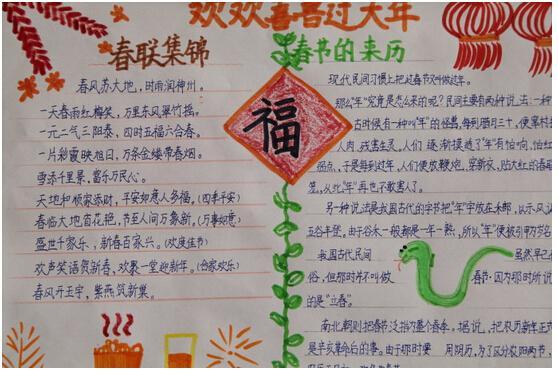 欢欢喜喜过大年
春联集锦
春风苏大地，时雨润神州。
一天春雨红梅笑，万里东风翠竹摇。
一元二气三阳泰，四时五福六合春。
一片彩霞映旭日，万条金缕带春烟。
雪添千里景，富乐万民心。
天地和顺家添财，平安如意人多福。(四季平安)
春临大地百花艳，节至人间万象新。(万事如意)
盛世千家乐，新春百家兴。(欢度佳节)
欢声笑语贺新春，欢聚一堂迎新年。(合家欢乐)
春风开玉宇，紫燕筑新巢。
福
春节的来历
现代民间习惯上把过春节又叫做过年。
那么"年"究竟是怎么来的呢？民间主要有两种说法：一种
古时候有一种叫"年"的怪兽，每到腊月三十，便窜村
人肉，残害生灵，人们逐渐摸透了"年"有怕响，怕红
弱点，于是每到过年，人们便放鞭炮，穿新衣，贴大红的春联
笼，从此"年"再也不敢害人了。
另一种说法是我国古代的字书把"年"字放在禾部，以示风
五谷丰登。由于谷禾一般都是一年一熟，所以"年"便被引申为
我国古代民间
虽然早已
俗，但那时并不叫做
春节，因为那时所说
的是"立春"。
南北朝则把春节泛指为整个春季，据说，把农历新年正
是辛亥革命后的事。由于那时要
用阳历，为了区分农阳两节，